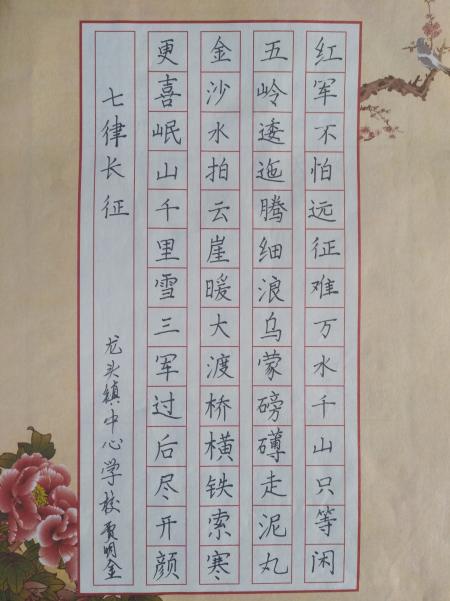 红军不怕远征难万水千山只等闲
五岭逶迤腾细浪乌蒙磅礴走泥丸
金沙水拍云崖暖大渡桥横铁索寒
更喜岷山千里雪三军过后尽开颜
七律长征
龙头镇中心学校贾明金